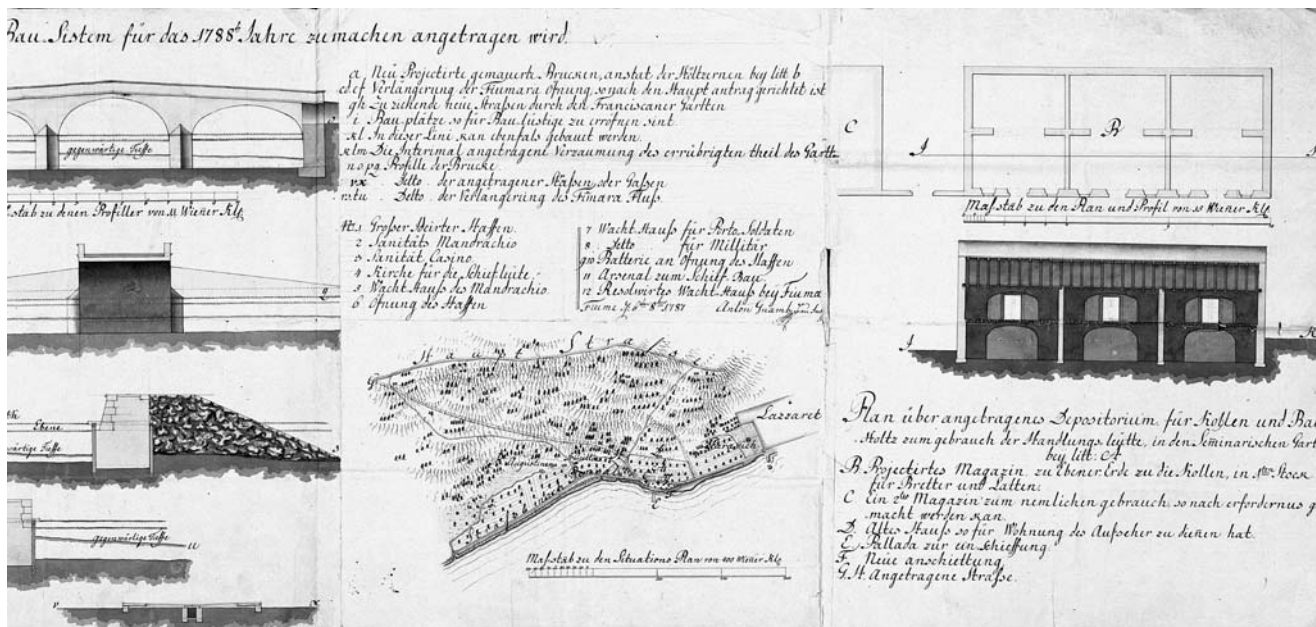 Bau Sistem für das 1788te Jahre zu machen angetragen wird.
a Neü Projectirte gemauerte Brucken, anstat der Höltzernen bey litt b
cdef Verlängerung der Fiumara Öfnung, so nach den Haupt antrag gerichtet ist
gh Zu ziehende neüe Strassen durch den Franciscaner Gartten
i Bau plätze so für Bau lüstige zu eröfnen sint
kl In dieser Lini kan ebenfals gebauet werden.
klm Die Interimal angetragene Verzaumung des errübrigten theil des Gartt
nopq Profille der Brucke
vx Detto der angetragener Stassen oder Gassen
rstu Detto der Verlängerung des Fiumara Fluss.
gegenwärtige Tieffe
stab zu denen Profiller von 11 Wiener Klf
No. 1 Grosser Steirter Haffen.
2 Sanitäts Mandrachio
3 Sanität Casino
4 Kirche für die Schiefleüte
5 Wacht Hauss des Mandrachio
6 Öfnung des Haffen
7 Wacht Hauss für Porto Soldaten
8 Detto für Millitär
9 10 Batterie an Öfnung des Haffen
11 Arsenal zum Schief Bau
12 Resolwirtes Wacht Hauss bey Fiuma
Fiume 1787 Anton Gnamb
q
Ebene
wärtige Tieffe
gegenwärtige Tieffe
u
v x
Haupt Strasse
G
Lazzaret
Augustiner
Massstab zu den Situations Plan von 400 Wiener Klf
C J B
Massstab zu den Plan und Profil von 10 Wiener Klf
Plan über angetragenes Depositorium für Kohlen und Bau
Holtz zum gebrauch der Handlungs leütte, in den Seminarischen Gart
bey litt: A
B Projectirtes Magazin zu ebener Erde zu die Kollen, in 1ten Stock
für Bretter und Latten.
C Ein 2tes Magazin zum nemlichen gebrauch, so nach erfordernus g
macht werden kan.
D Altes Hauss so für Wohnung des Aufseher zu dienen hat.
E Pallada zur ein schieffung
F Neüe anschiettung
G.H. Angetragene Strasse.